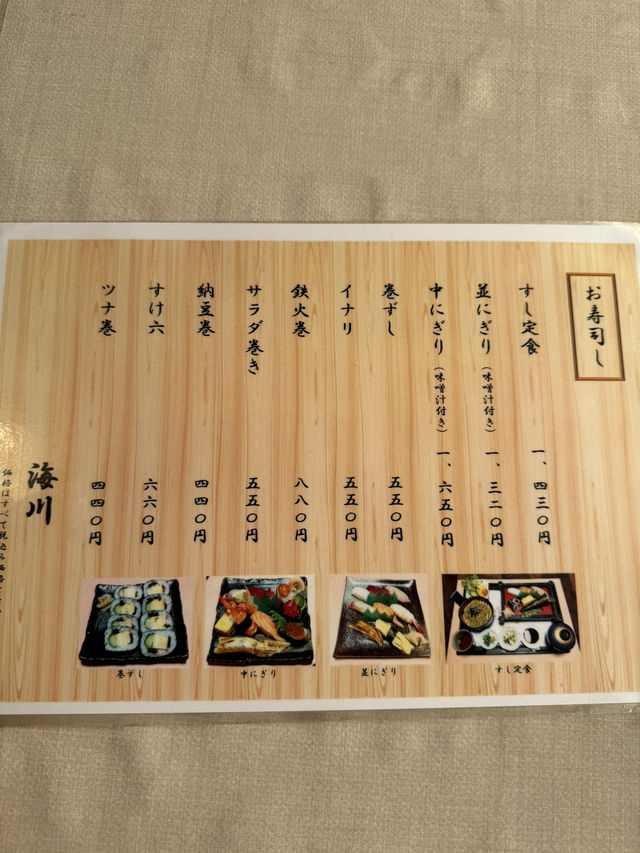 お寿司
すし定食 一、四三〇円
並にぎり（味噌汁付き） 一、三二〇円
中にぎり（味噌汁付き） 一、六五〇円
巻ずし 五五〇円
イナリ 五五〇円
鉄火巻 八八〇円
サラダ巻き 五五〇円
納豆巻 四四〇円
すけ六 六六〇円
ツナ巻 四四〇円
海川
価格はすべて税込み価格
すし定食
並にぎり
中にぎり
巻ずし